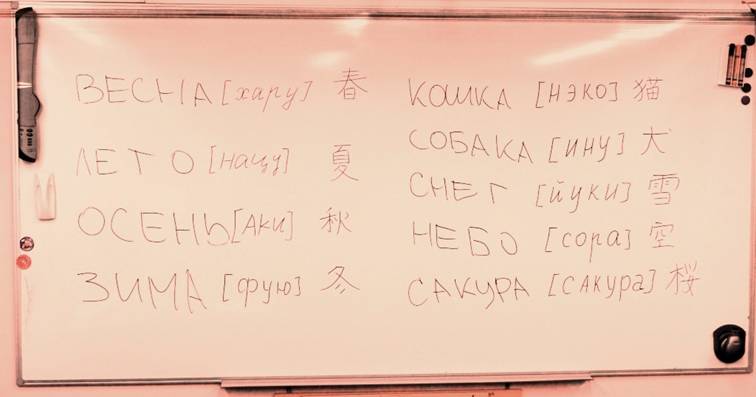 ВЕСНА [хару] 春
ЛЕТО [нацу] 夏
ОСЕНЬ [Аки] 秋
ЗИМА [фую] 冬
КОШКА [нэко] 猫
СОБАКА [ину] 犬
СНЕГ [йуки] 雪
НЕБО [сора] 空
САКУРА [сакура] 桜